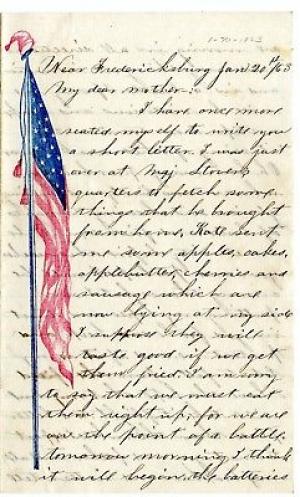 Near Fredericksburg Jan 20th/63
My dear mother:
I have once more
seated myself to write you
a short letter. I was just
over at Maj. Stover's
quarters to fetch some
things that he brought
from home, Kate sent
me some apples, cakes,
applebutter, cherries and
sausage which are
now lying at my side
I suppose they will
taste good if we get
them fried. I am sorry
to say that we must eat
them right up, for we are
on the point of a battle.
tomorrow morning I think
it will begin. the batteries